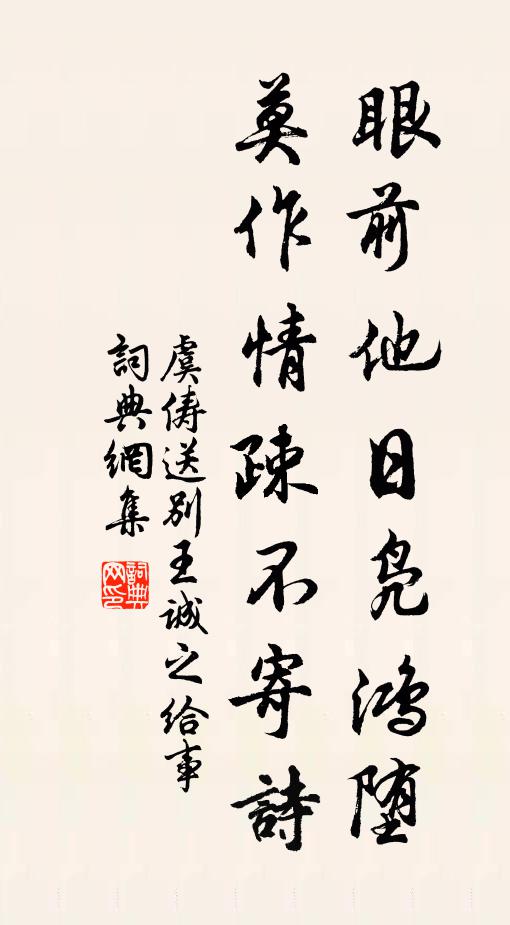 眼前他日凫鸿堕
莫作情疎不寄詩
虞儔送别王誠之给事
詞典網集
詞典网印